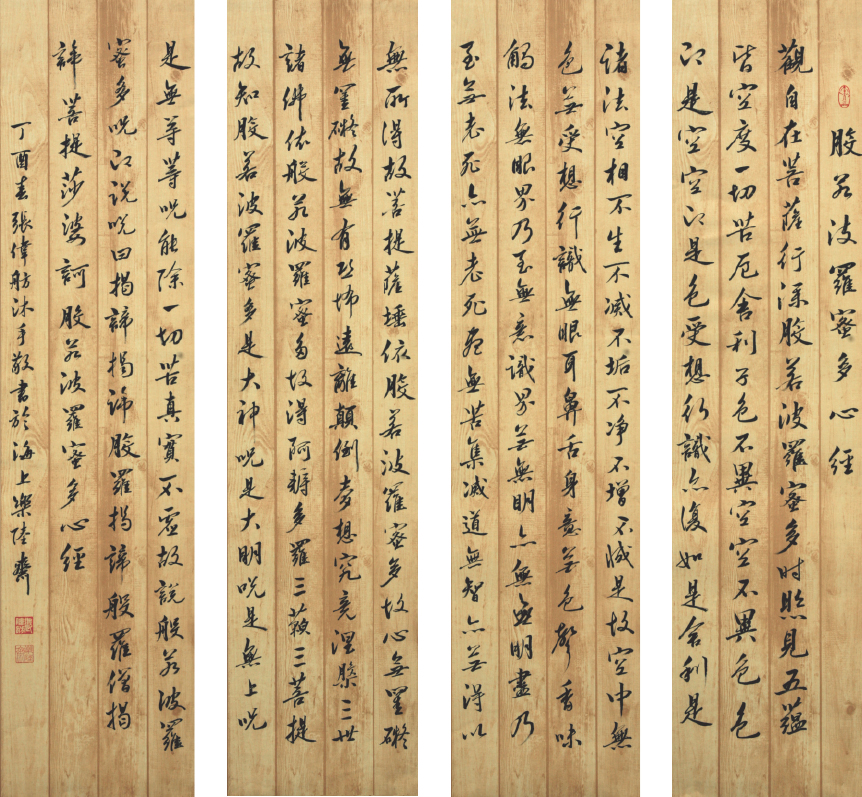 般若波羅蜜多心經
觀自在菩薩行深般若波羅蜜多時照見五蘊
皆空度一切苦厄舍利子色不異空空不異色色
即是空空即是色受想行識亦復如是舍利是
諸法空相不生不滅不垢不净不增不減是故空中無
色無受想行識無眼耳鼻舌身意無色聲香味
觸法無眼界乃至無意識界無無明亦無無明盡乃
至無老死亦無老死盡無苦集滅道無智亦無得以
無所得故菩提薩埵依般若波羅蜜多故心無罣礙
無罣礙故無有恐怖遠離顛倒夢想究竟涅槃三世
諸佛依般若波羅蜜多故得阿耨多羅三藐三菩提
故知般若波羅蜜多是大神呪是大明呪是無上呪
是無等等呪能除一切苦真實不虛故說般若波羅
蜜多呪即說呪曰揭諦揭諦般羅揭諦般羅僧揭
諦菩提莎婆訶般若波羅蜜多心經
丁酉春張偉舫沐手敬書於海上樂陸齋